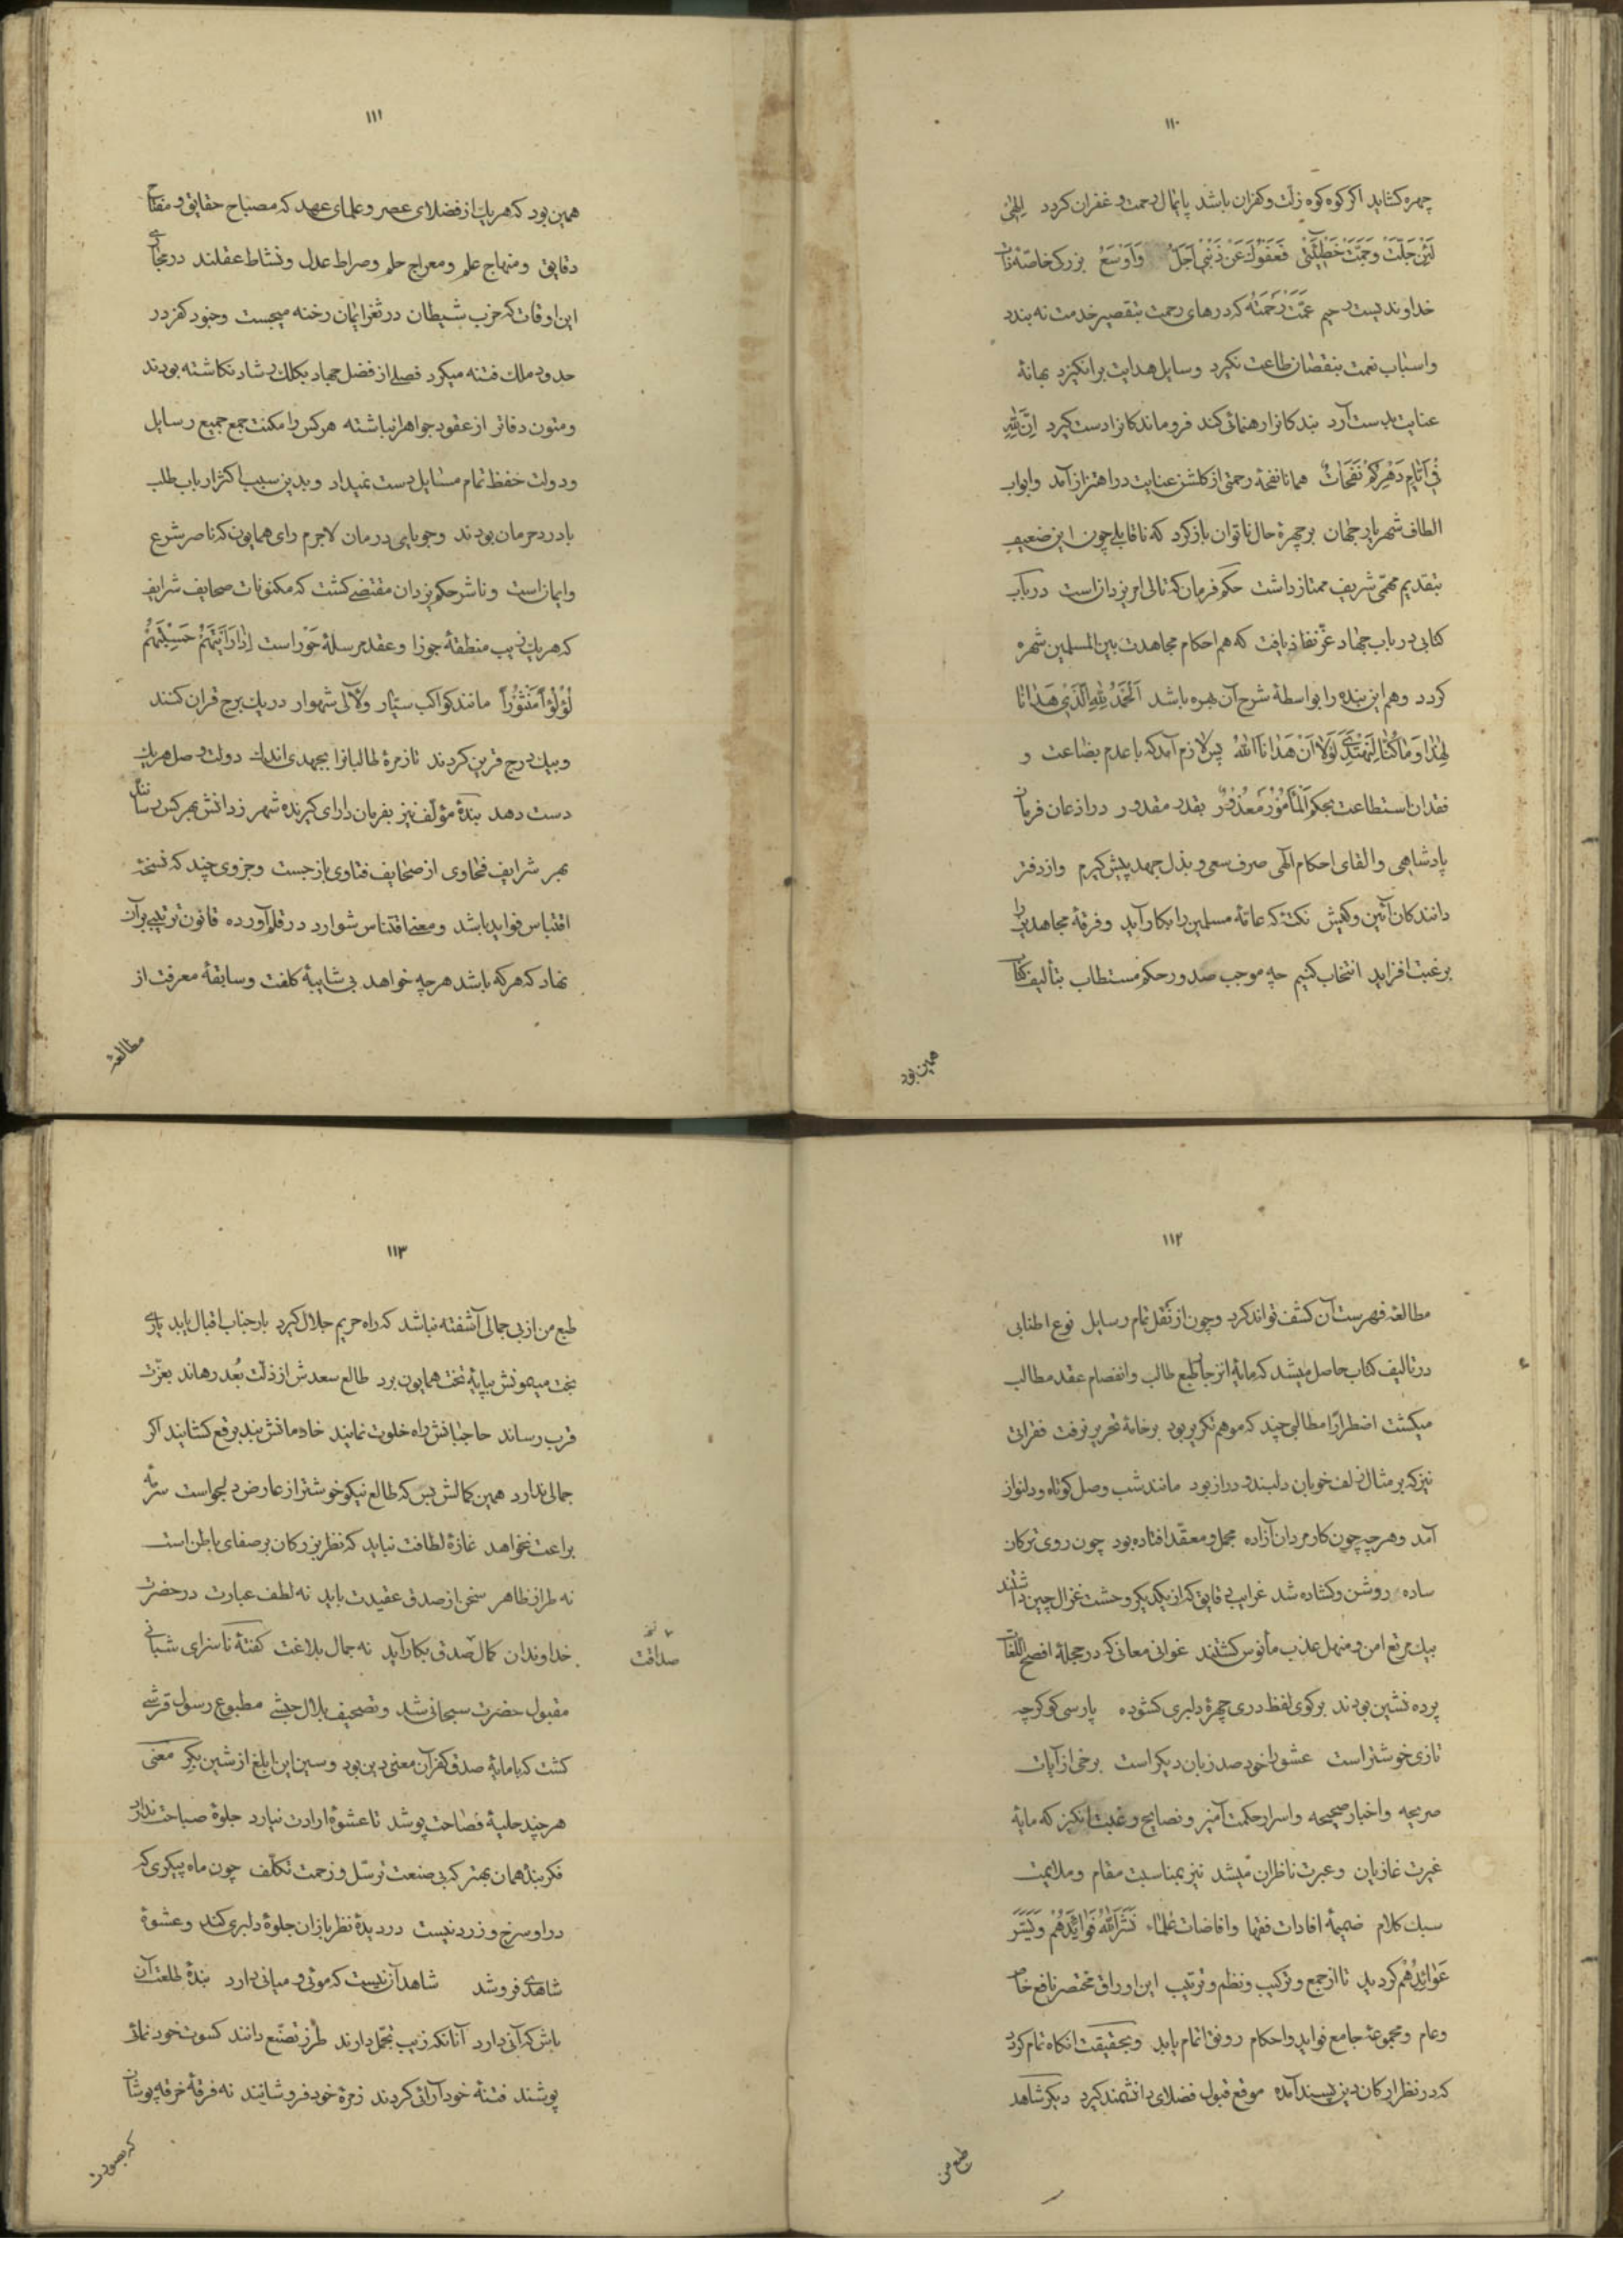 ١١٠
چهره کشاید اگر کوه کوه زلّت و کفران باشد پایمال رحمت و غفران کردد اِلهی
لَئِنْ جَلَّتْ وَجَمَّتْ خَطیئَتی فَعَفْوُكَ عَنْ ذَنْبی اَجَلُّ وَاَوْسَعُ بزرک خاصّه ذات
خداوندیست رحیم عَمَّتْ رَحْمَتُه که درهای رحمت بتقصیر خدمت نه بندد
واسباب نعمت بنقصان طاعت نکیرد وسایل هدایت برانکیزد بهانهٔ
عنایت بدست آرد بندکانرا رهنمائی کند فروماندکانرا دست کیرد اِنَّ لِلّٰهِ
فی اَیّامِ دَهْرِکُمْ نَفَحاتٌ همانا نفحهٔ رحمتی از کلشن عنایت در اهتزاز آمد وابواب
الطاف شهریار جهان بر چهرهٔ حال ناتوان باز کرد که ناقابلی چون این ضعیف
بتقدیم مهمّی شریف ممتاز داشت حکم فرمان که تالی امر یزدان است در باب
کتابی در باب جهاد عزّ نفاذ یافت که هم احکام مجاهدت بین المسلمین شهره
کردد وهم این بنده را بواسطهٔ شرح آن بهره باشد اَلْحَمْدُ لِلّٰهِ الَّذی هَدانا
لِهذا وَما کُنّا لِنَهْتَدِیَ لَوْلا اَنْ هَدانَا اللّٰهُ پس لازم آمد که با عدم بضاعت و
فقدان استطاعت بحکم اَلْمَأْمُورُ مَعْذُورٌ بقدر مقدور در اذعان فرمان
پادشاهی والقای احکام الهی صرف سعی و بذل جهد پیش کیرم واز دفتر
دانندکان آئین وکیش نکتهٔ که عامّهٔ مسلمین را بکار آید وفرقهٔ مجاهدین را
بر غبت افزاید انتخاب کنیم چه موجب صدور حکم مستطاب بتألیف کتاب
همین بود
١١١
همین بود که هریك از فضلای عصر وعلمای عهد که مصباح حقایق و مفتاح
دقایق ومنهاج علم ومعراج حلم وصراط عدل ونشاط عقلند در مجاری
این اوقات که حزب شیطان در ثغر ایمان رخنه میجست وجنود کفر در
حدود ملك فتنه میکرد فصلی از فضل جهاد بکلك رشاد نکاشته بودند
ومتون دفاتر از عقود جواهر انباشته هرکس را مکنت جمع جمیع رسایل
ودولت حفظ تمام مسایل دست نمیداد وبدین سبب اکثر ارباب طلب
با درد حرمان بودند وجویای درمان لاجرم رای همایون که ناصر شرع
وایمان است وناشر حکم یزدان مقتضی کشت که مکنونات صحایف شرایف
که هریك زیب منطقهٔ جوزا وعقد مرسلهٔ حَوْراست اِذا رَاَیْتَهُمْ حَسِبْتَهُمْ
لُؤْلُؤاً مَنْثُوراً مانند کواکب سیّار ولآلی شهوار در یك برج قران کنند
وبیك درج قرین کردند تا زمرهٔ طالبانرا بجهدی اندك دولت وصل هریك
دست دهد بندهٔ مؤلّف نیز بفرمان دارای کیرنده شهر ز دانش بهر کس رسانندهٔ
بهر شرایف فحاوی از صحایف فتاوی باز جست وجزوی چند که نسخهٔ
اقتباس فواید باشد ومعنی اقتناس شوارد در قلم آورده قانون ترتیبی بر آن
نهاد که هرکه باشد هرچه خواهد بی شایبهٔ کلفت وسابقهٔ معرفت از
مطالعهٔ
١١٢
مطالعهٔ فهرست آن کشف تواند کرد وچون از نقل تمام رسایل نوع اطنابی
در تالیف کتاب حاصل میشد که مایهٔ انزجار طبع طالب وانفصام عقد مطالب
میکشت اضطرارًا مطالبی چند که موهم تکریر بود بر خامهٔ تحریر نرفت فقراتی
نیز که بر مثال زلف خوبان دلبند ودراز بود مانند شب وصل کوتاه ودلنواز
آمد وهرچه چون کار مردان آزاده مجمل ومعقّد افتاده بود چون روی ترکان
ساده روشن وکشاده شد غرایب دقایق که از یکدیکر وحشت غزال چین داشتند
بیك مرتع امن ومنهل عذب مأنوس کشتند غوانی معانی که در حجلهٔ افصح اللغات
پرده نشین بودند بر کوی لفظ دری چهرهٔ دلبری کشوده پارسی کو کرچه
تازی خوشتر است عشق را خود صد زبان دیکر است برخی از آیات
صریحه واخبار صحیحه واسرار حکمت آمیز ونصایح رغبت انکیز که مایهٔ
غیرت غازیان وعبرت ناظران میشد نیز بمناسبت مقام وملایمت
سبك کلام ضمیمهٔ افادات فقها وافاضات علماء نَشَرَ اللّٰهُ فَوائِدَهُمْ وَیَسَّرَ
عَوائِدَهُمْ کردید تا از جمع وترکیب ونظم وترتیب این اوراق مختصر نافع خاص
وعام ومجموعهٔ جامع فواید واحکام رونق اتمام یابد وبحقیقت آنکاه تمام کردد
که در نظر ارکان دین پسند آمده موقع قبول فضلای دانشمند کیرد دیکر شاهد
طبع من
١١٣
طبع من از بی جمالی آشفته نباشد که راه حریم جلال کیرد بار جناب اقبال یابد یاری
بخت میمونش بپایهٔ تخت همایون برد طالع سعدش از ذلّت بُعد رهاند بعزّت
قرب رساند حاجبانش راه خلوت نمایند خادمانش بند برقع کشایند اکر
جمالی ندارد همین کمالش بس که طالع نیکو خوشتر از عارض دلجواست سرمهٔ
براعت نخواهد غازهٔ لطافت نیابد که نظر بزرکان بر صفای باطن است
نه طراز ظاهر سخن از صدق عقیدت باید نه لطف عبارت در حضرت
خداوندان کمال صدق بکار آید نه جمال بلاغت کفتهٔ ناسزای شبانی
نخ
صداقت
مقبول حضرت سبحانی شد وتصحیف بلال حبشی مطبوع رسول قرشی
کشت که با مایهٔ صدق کفر آن معنی دین بود وسین این ابلغ از شین بکر معنی
هرچند حلیهٔ فصاحت پوشد تا عشوهٔ ارادت نیارد جلوهٔ صباحت ندارد
فکر بنده همان بهتر که بی صنعت ترسّل وزحمت تکلّف چون ماه پیکری که
در او سرخ وزرد نیست در دیدهٔ نظربازان جلوهٔ دلبری کند وعشوهٔ
شاهدی فروشد شاهد آن نیست که موئی ومیانی دارد بندهٔ طلعت آن
باش که آنی دارد آنانکه زیب تجمّل دارند طرز تصنّع دانند کسوت خود نمائی
پوشند فتنهٔ خود آرائی کردند زمرهٔ خود فروشانند نه فرقهٔ خرقه پوشان
که بصورت